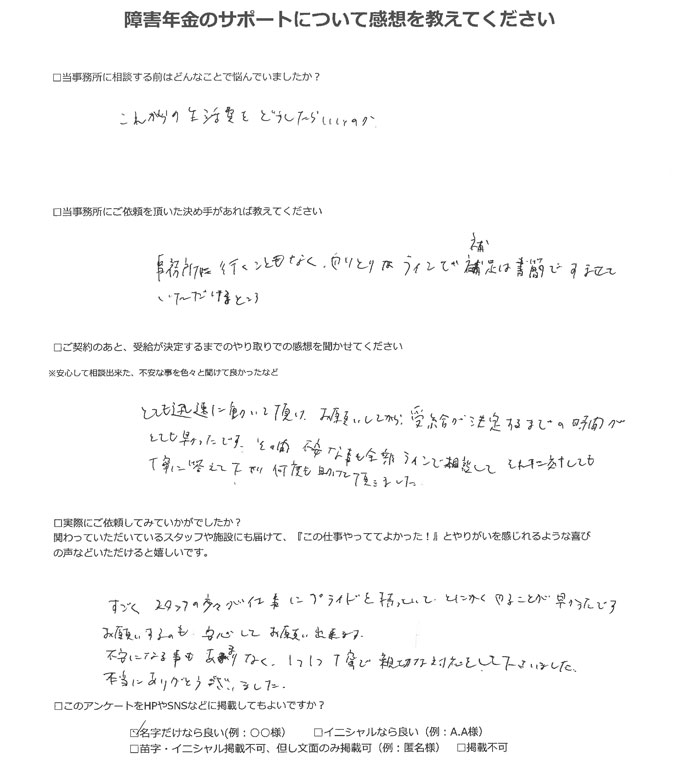 障害年金のサポートについて感想を教えてください
□当事務所に相談する前はどんなことで悩んでいましたか？
これからの生活費をどうしたらいいのか
□当事務所にご依頼を頂いた決め手があれば教えてください
補
事務所に行くこともなく、やりとりはラインでが補足は書簡ですませて
いただけるところ
□ご契約のあと、受給が決定するまでのやり取りでの感想を聞かせてください
※安心して相談出来た、不安な事を色々と聞けて良かったなど
とても迅速に動いて頂け、お願いしてから、受給が決定するまでの時間が
とても早かったです。その間 不安な事も全部ラインで相談して それに対しても
丁寧に答えて下さり 何度も助けて頂きました。
□実際にご依頼してみていかがでしたか？
関わっていただいているスタッフや施設にも届けて、『この仕事やっててよかった！』とやりがいを感じれるような喜び
の声などいただけると嬉しいです。
すごく スタッフの方々が仕事にプライドを持っていて、とにかくやることが早かったです
お願いするのも 安心してお願い出来ます。
不安になる事もあまりなく、1つ1つ丁寧で親切な対応をして下さいました。
本当にありがとうございました。
□このアンケートをHPやSNSなどに掲載してもよいですか？
☑名字だけなら良い(例：〇〇様) □イニシャルなら良い（例：A.A様）
□苗字・イニシャル掲載不可、但し文面のみ掲載可（例：匿名様） □掲載不可